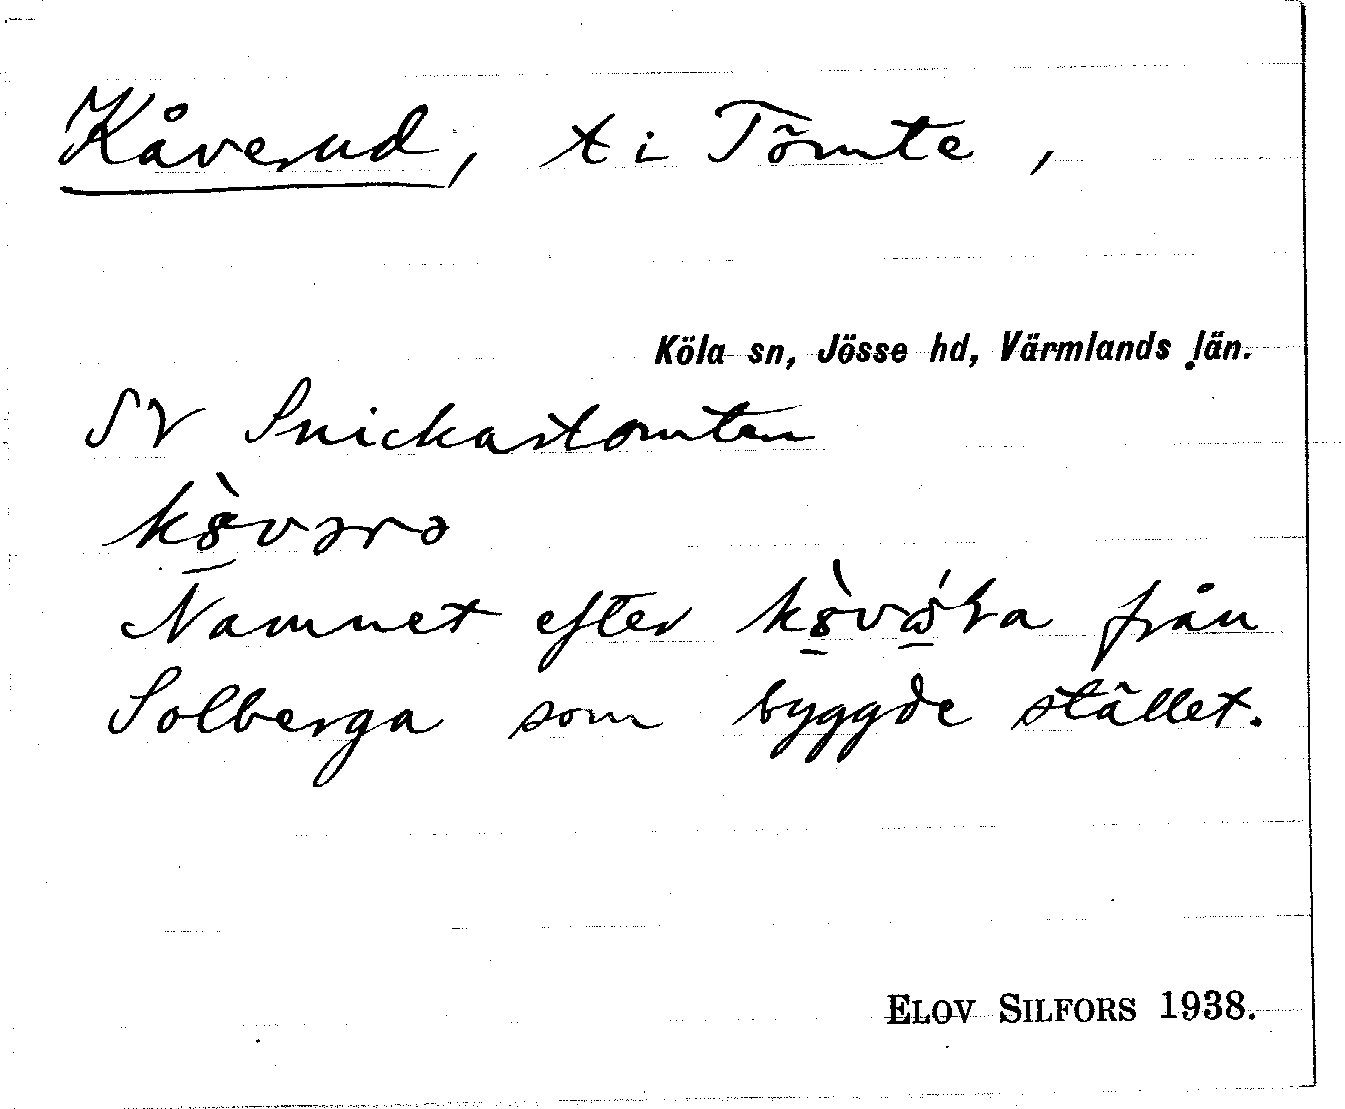 Kåverud, t i Tömte,
Köla sn, Jösse hd, Värmlands län.
SV Snickartomten
Namnet efter från
Solberga som byggde stället.
ELOV SILFORS 1938.